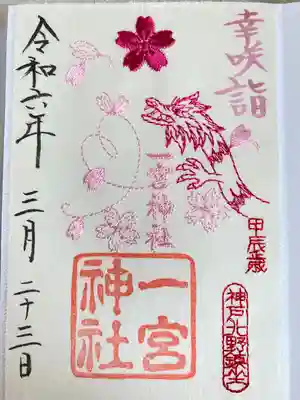 幸咲詣
甲辰歳
神戸北野鎮守
一宮神社
一宮神社
令和六年 三月 二十三日